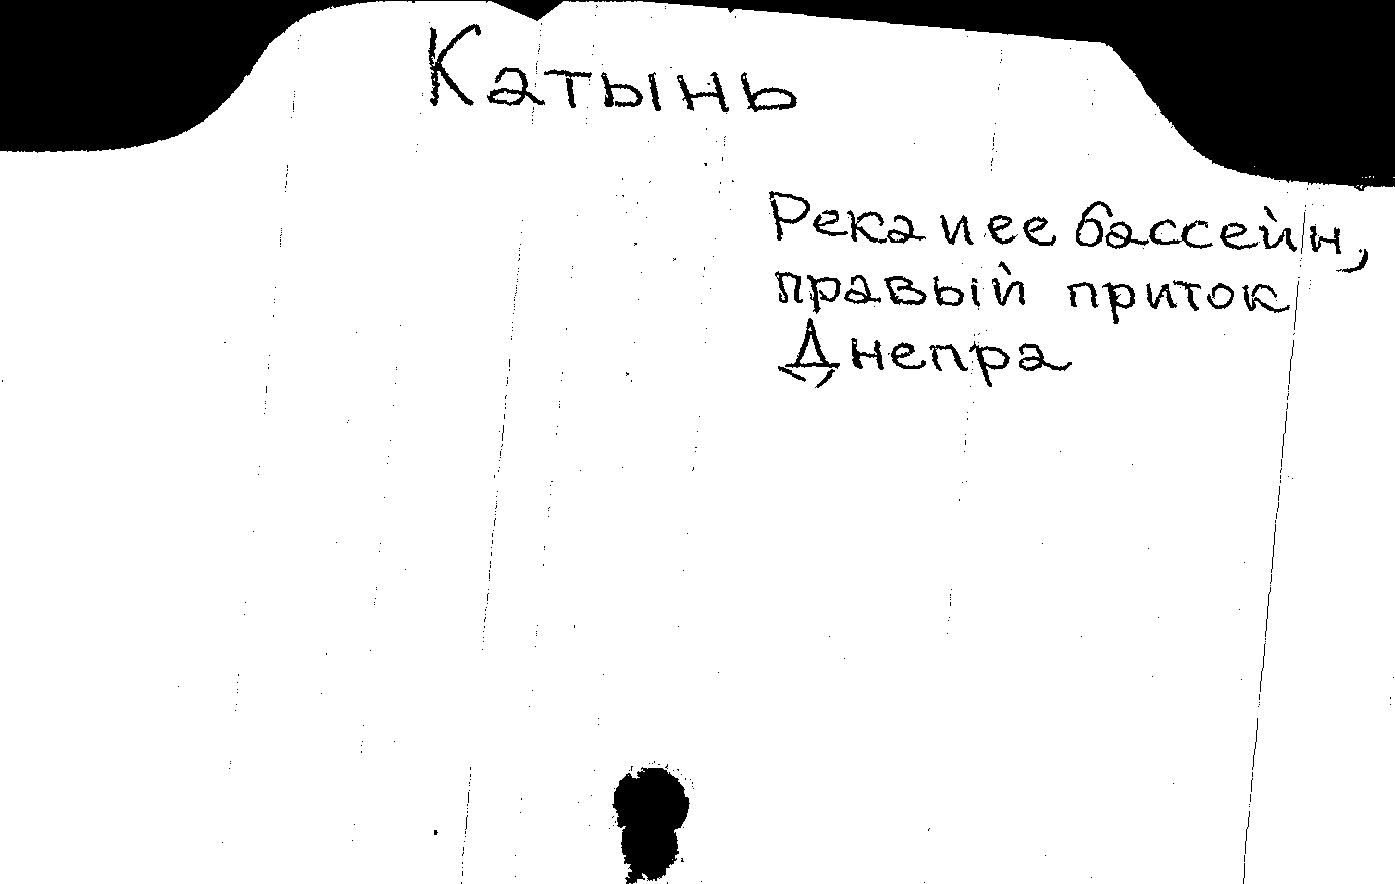 Катынь
Река и ее бассейн,
правый приток
Днепра